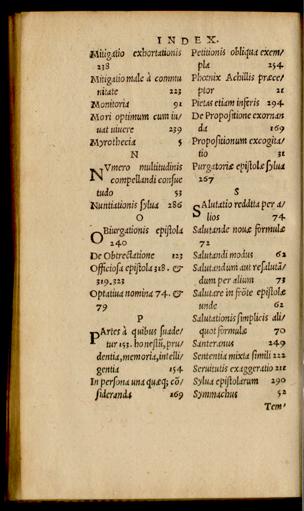 INDEX.
Mitigatio exhortationis
238
Mitigatio male à commu
nitate 223
Monitoria 91
Mori optimum cum iu-
uat uiuere 239
Myrothecia 5
N
NVmero multitudinis
compellandi consue
tudo 53
Nuntiationis sylua 286
O
OBiurgationis epistola
240
De Obtrectatione 123
Officiosa epistola 318. &
319.323
Optatiua nomina 74. &
79
P
PArtes à quibus suade-
tur 153. honestū, pru-
dentia, memoria, intelli-
gentia 154
In persona una quæq; cō-
siderandæ 169
Petitionis obliqua exem-
pla 254
Phœnix Achillis præce-
ptor 21
Pietas etiam inferis 294
De Propositione exornan
da 169
Propositionum excogita-
tio 31
Purgatoriæ epistolæ sylua
267
S
SAlutatio reddita per a-
lios 74
Salutandi nouæ formulæ
72
Salutandi modus 62
Salutandum aut resalutā-
dum per alium 73
Salutare in frōte epistolæ
unde 62
Salutationis simplicis ali-
quot formulæ 70
Santeranus 249
Sententia mixta simili 222
Seruitutis exaggeratio 211
Sylua epistolarum 290
Symmachus 52
Tem-